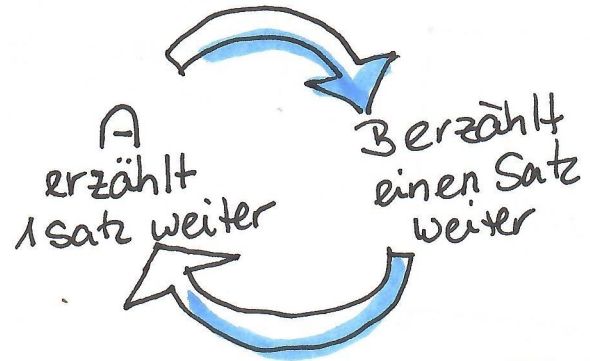 A
erzählt
1 Satz weiter
B erzählt
einen Satz
weiter